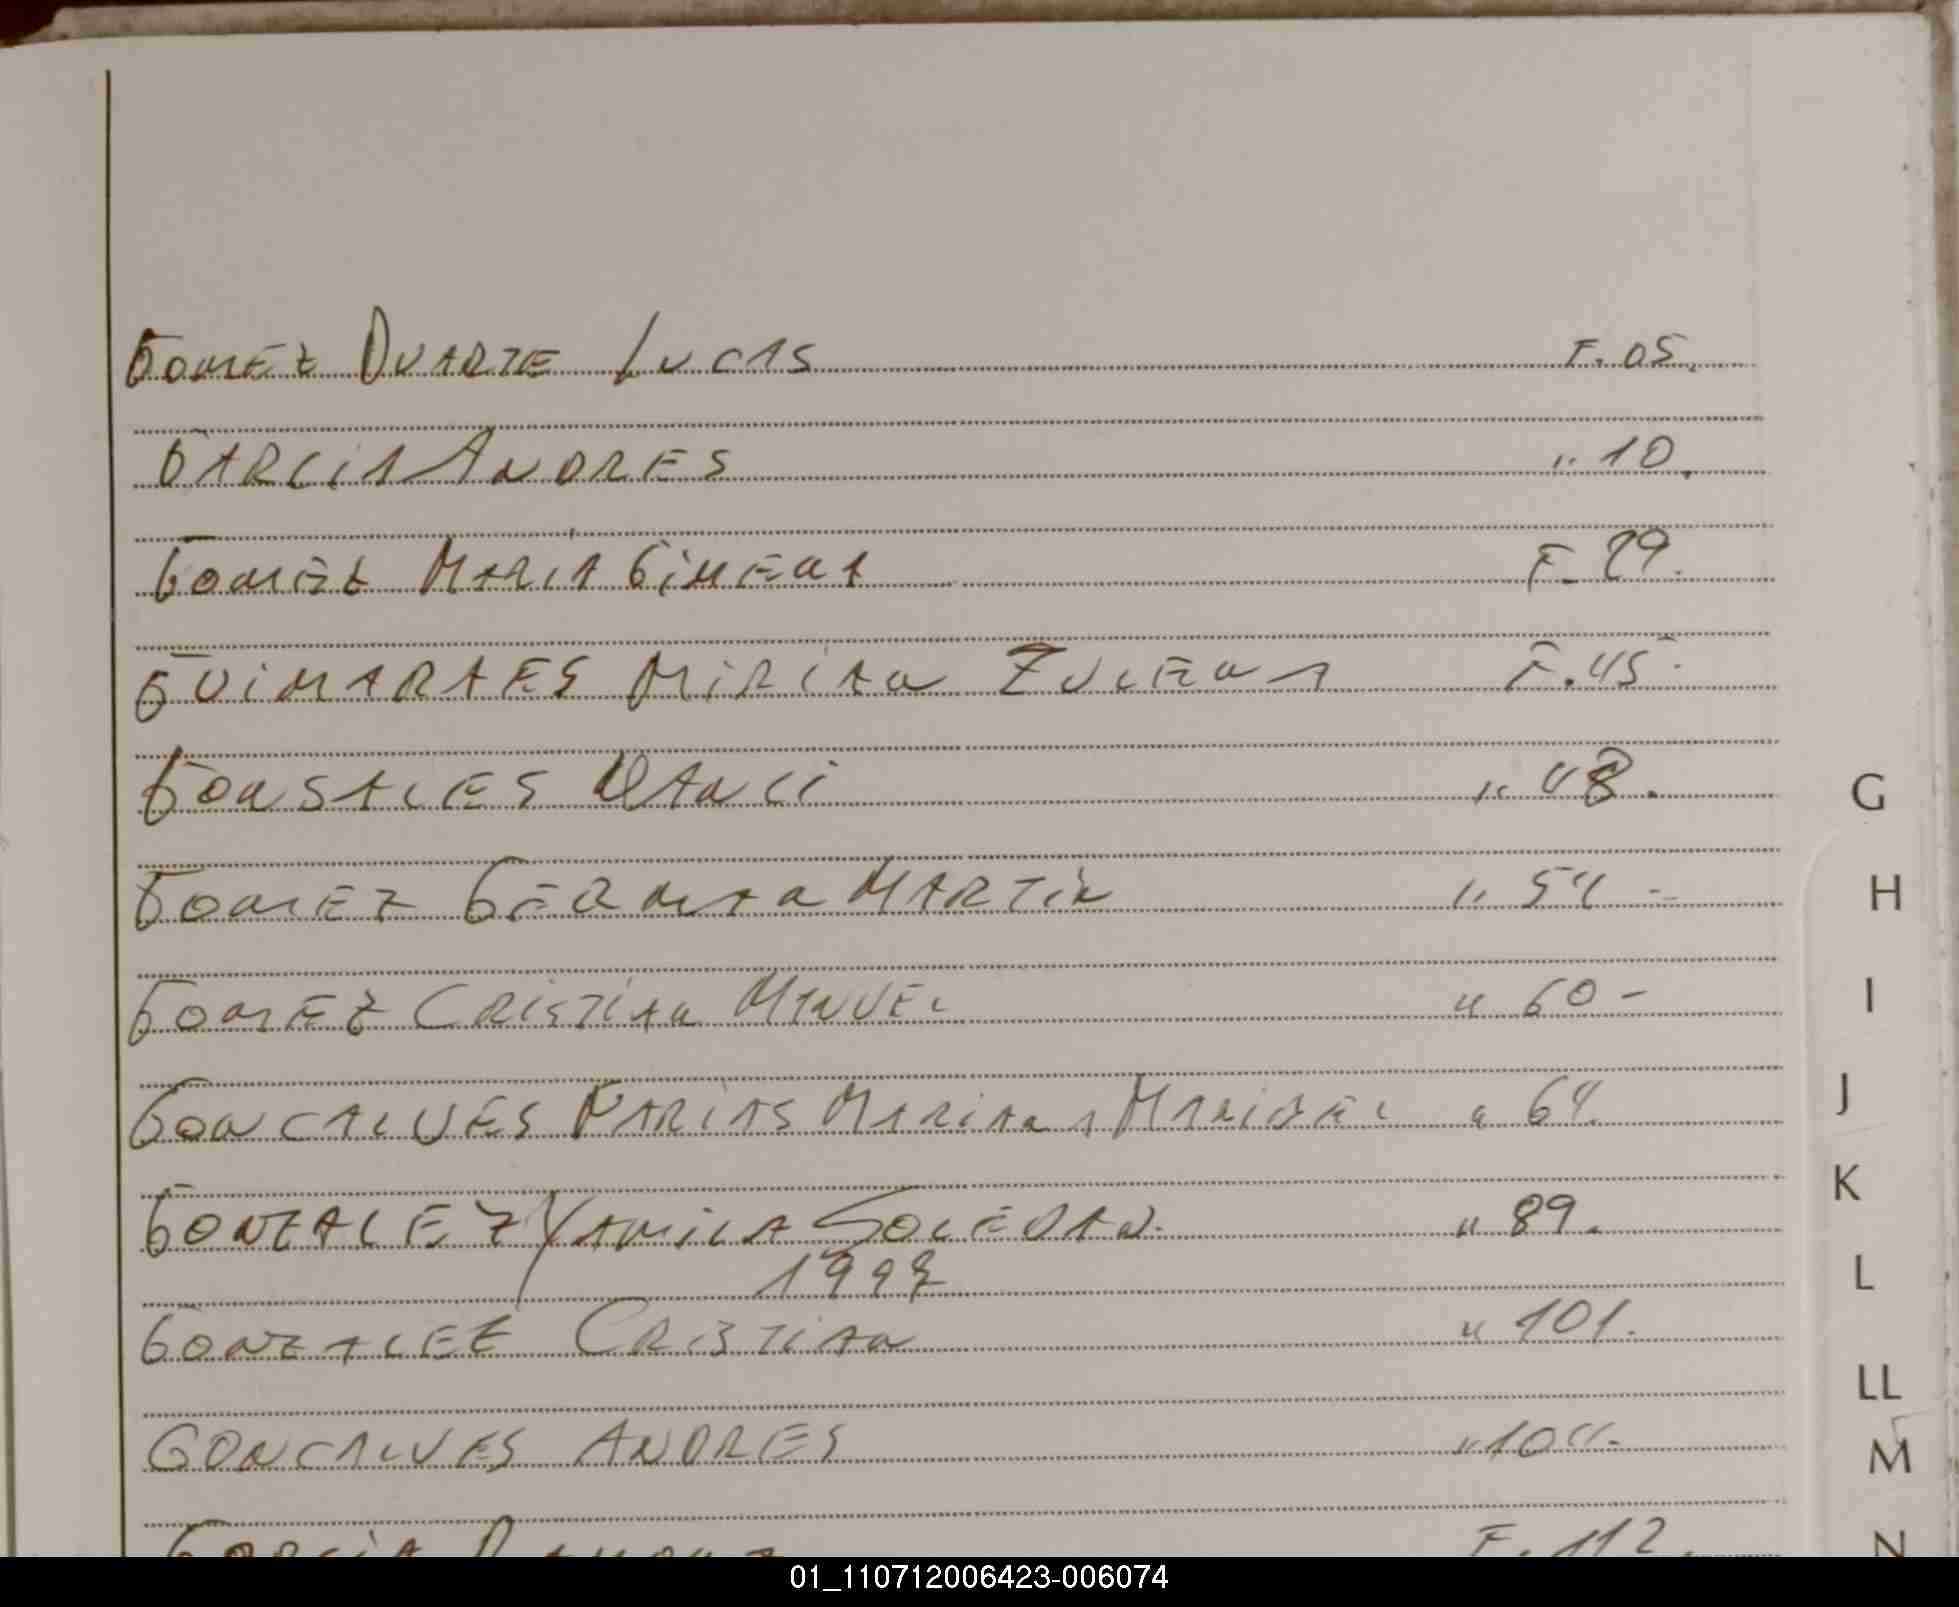 GOMEZ DUARTE LUCAS F. 05.
GARCIA ANDRES " 10.
GOMEZ MARIA GIMENA F. 29.
GUIMARAES MIRIAN ZULENA F. 45-
GONSALES DANCI " 48.
GOMEZ GERMAN MARTIN " 54-
GOMEZ CRISTIAN MANUEL " 60-
GONCALVES FARIAS MARIANA MARIBEL " 64.
GONZALEZ YAMILA SOLEDAD. " 89.
GONZALEZ CRISTIAN " 101.
GONCALVES ANDRES " 104-
GARCIA F. 112.
G
H
I
J
K
L
LL
M
N
01_110712006423-006074